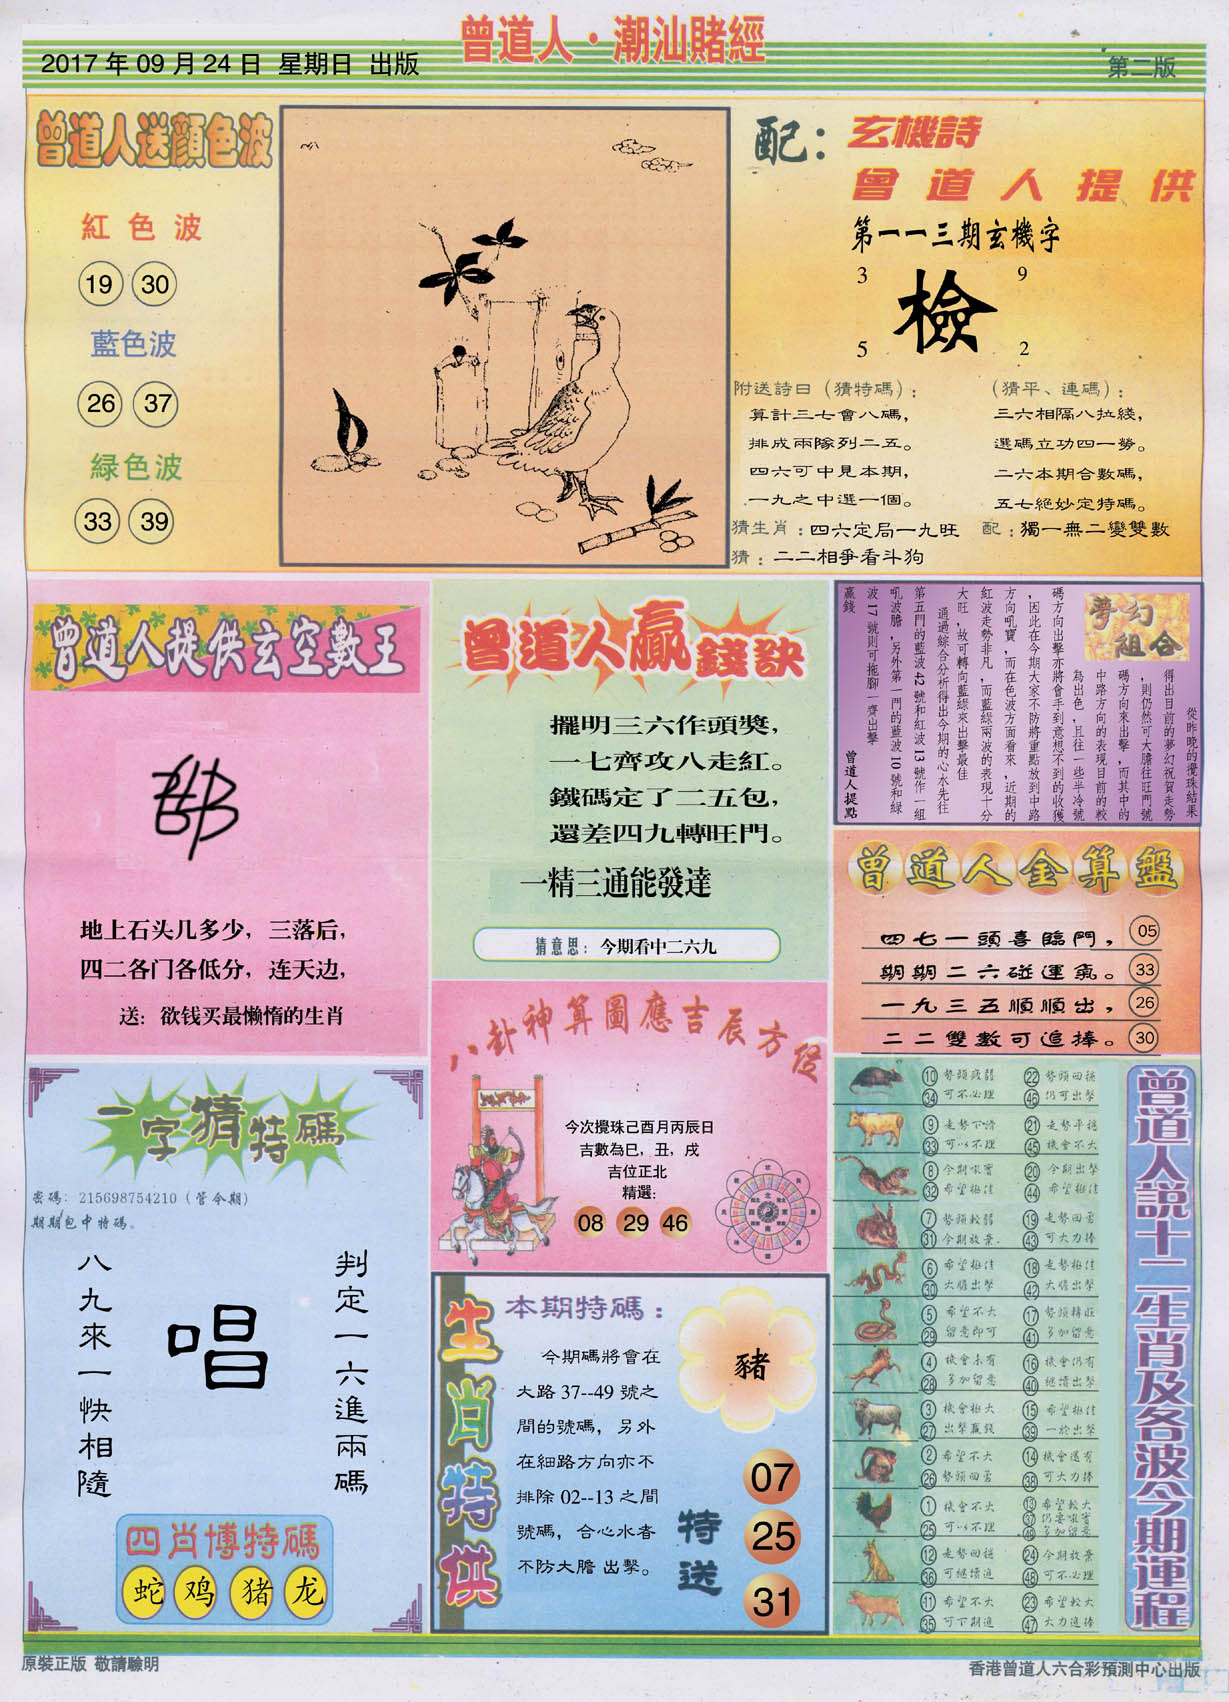 曾道人·潮汕賭經
2017年09月24日 星期日 出版
第二版
曾道人送顔色波
紅色波
19 30
藍色波
26 37
緑色波
33 39
配：玄機詩
曾道人提供
第一一三期玄機字
3 9
檢
5 2
附送詩曰（猜特碼）：
算計三七會八碼，
排成兩隊列二五。
四六可中見本期，
一九之中選一個。
（猜平、連碼）：
三六相隔八拉綫，
選碼立功四一勞。
二六本期合數碼，
五七絕妙定特碼。
猜生肖：四六定局一九旺 配：獨一無二變雙數
猜：二二相爭看斗狗
曾道人提供玄空數王
地上石头几多少，三落后，
四二各门各低分，连天边，
送：欲钱买最懒惰的生肖
曾道人贏錢訣
擺明三六作頭獎，
一七齊攻八走紅。
鐵碼定了二五包，
還差四九轉旺門。
一精三通能發達
猜意思：今期看中二六九
夢幻組合
從昨晚的攪珠結果
得出目前的夢幻祝賀走勢
，則仍然可大膽往旺門號
碼方向來出擊，而其中的
中路方向的表現目前的較
為出色，且往一些半冷號
碼方向出擊亦將會手到意想不到的收獲
，因此在今期大家不防將重點放到中路
方向吼寶，而在色波方面看來，近期的
紅波走勢非凡，而藍綠兩波的表現十分
大旺，故可轉向藍綠來出擊最佳
通過綜合分析得出今期的心水先往
第五門的藍波42號和紅波13號作一組
吼波膽，另外第一門的藍波10號和綠
波17號則可拖腳一齊出擊
贏錢
曾道人提點
曾道人金算盤
四七一頭喜臨門， 05
期期二六碰運氣。 33
一九三五順順出， 26
二二雙數可追捧。 30
八卦神算圖應吉辰方位
今次攪珠己酉月丙辰日
吉數為巳，丑，戌
吉位正北
精選：
08 29 46
一字猜特碼
密碼：215698754210（管令期）
期期包中特碼。
判定一六進兩碼
唱
八九來一快相隨
四肖博特碼
蛇 鸡 猪 龙
生肖特供
本期特碼：
今期碼將會在
大路37--49號之
間的號碼，另外
在細路方向亦不
排除02--13之間
號碼，合心水者
不防大膽出擊。
豬
特送
07
25
31
曾道人説十二生肖及各波今期運程
10 34 勢頭疲弱 可不必理 22 46 勢頭回穩 仍可出擊
9 33 走勢下滑 可以不理 21 45 走勢平穩 機會不大
8 32 今期吸寶 希望極佳 20 44 今期出擊 希望極佳
7 31 勢頭較弱 今期放棄 19 43 走勢回勇 可大力捧
6 30 希望極佳 大膽出擊 18 42 走勢極佳 大膽出擊
5 29 希望不大 留意即可 17 41 勢頭轉旺 多加留意
4 28 機會未有 多加留意 16 40 機會仍有 繼續出擊
3 27 機會極大 出擊贏錢 15 39 希望極佳 一於出擊
2 26 希望不大 勢頭回勇 14 38 機會還有 可大力捧
1 25 機會不大 可以不理 13 37 49 希望較大 仍要吸寶 多加留意
12 36 走勢回穩 可繼續追 24 48 今期放棄 可不必理
11 35 希望不大 可下期追 23 47 希望較大 大力追捧
原裝正版 敬請驗明
香港曾道人六合彩預測中心出版